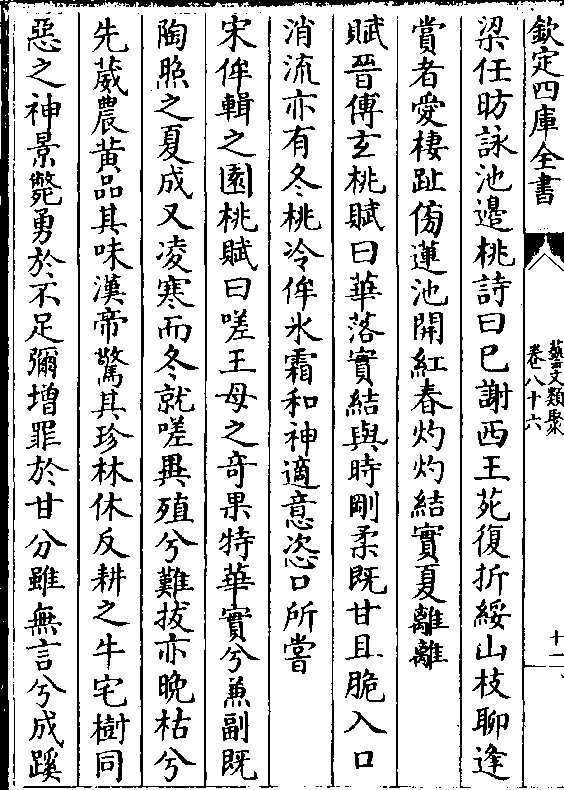 欽定四庫全書
藝文類聚
卷八十六
十二
梁任昉詠池邊桃詩曰已謝西王苑復折綏山枝聊逢
賞者愛棲趾傍蓮池開紅春灼灼結實夏離離
賦晉傅玄桃賦曰華落實結與時剛柔既甘且脆入口
消流亦有冬桃冷侔氷霜和神適意恣口所嘗
宋伍輯之園桃賦曰嗟王母之奇果特華實兮兼副既
陶煦之夏成又凌寒而冬就嗟異殖兮難拔亦晚枯兮
先葳農黃品其味漢帝驚其珍林休反耕之牛宅樹同
惡之神景斃勇於不足彌增罪於甘分雖無言兮成蹊